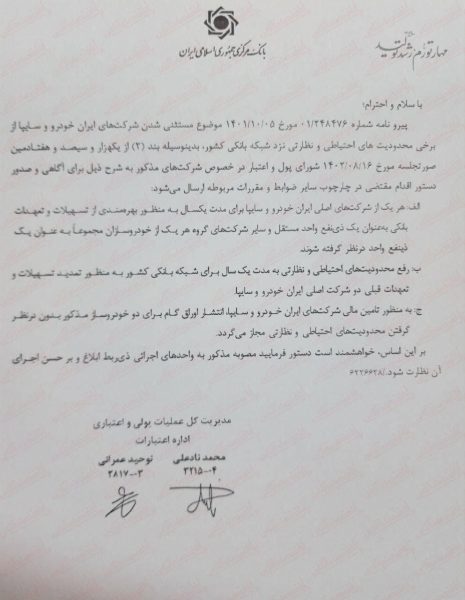 بانک مرکزی جمهوری اسلامی ایران
مهار تورم، رشد تولید
با سلام و احترام؛
پیرو نامه شماره ۰۱/۲۴۸۴۷۶ مورخ ۱۴۰۱/۱۰/۰۵ موضوع مستثنی شدن شرکت‌های ایران خودرو و سایپا از
برخی محدودیت های احتیاطی و نظارتی نزد شبکه بانکی کشور، بدینوسیله بند (۲) از یکهزار و سیصد و هفتادمین
صورتجلسه مورخ ۱۴۰۲/۰۸/۱۶ شورای پول و اعتبار در خصوص شرکت‌های مذکور به شرح ذیل برای آگاهی و صدور
دستور اقدام مقتضی در چارچوب سایر ضوابط و مقررات مربوطه ارسال می‌شود:
الف: هر یک از شرکت‌های اصلی ایران خودرو و سایپا برای مدت یکسال به منظور بهره‌مندی از تسهیلات و تعهدات
بانکی به‌عنوان یک ذی‌نفع واحد مستقل و سایر شرکت‌های گروه هر یک از خودروسازان مجموعاً به عنوان یک
ذینفع واحد درنظر گرفته شوند.
ب: رفع محدودیت‌های احتیاطی و نظارتی به مدت یک سال برای شبکه بانکی کشور به منظور تمدید تسهیلات و
تعهدات قبلی دو شرکت اصلی ایران خودرو و سایپا.
ج: به منظور تامین مالی شرکت‌های ایران خودرو و سایپا، انتشار اوراق گام برای دو خودروساز مذکور بدون درنظر
گرفتن محدودیت‌های احتیاطی و نظارتی مجاز می‌گردد.
بر این اساس، خواهشمند است دستور فرمایید مصوبه مذکور به واحدهای اجرائی ذی‌ربط ابلاغ و بر حسن اجرای
آن نظارت شود./۶۲۲۶۶۲۸
مدیریت کل عملیات پولی و اعتباری
اداره اعتبارات
محمد نادعلی توحید عمرانی
۳۲۱۵-۰۴ ۲۸۱۷-۰۳